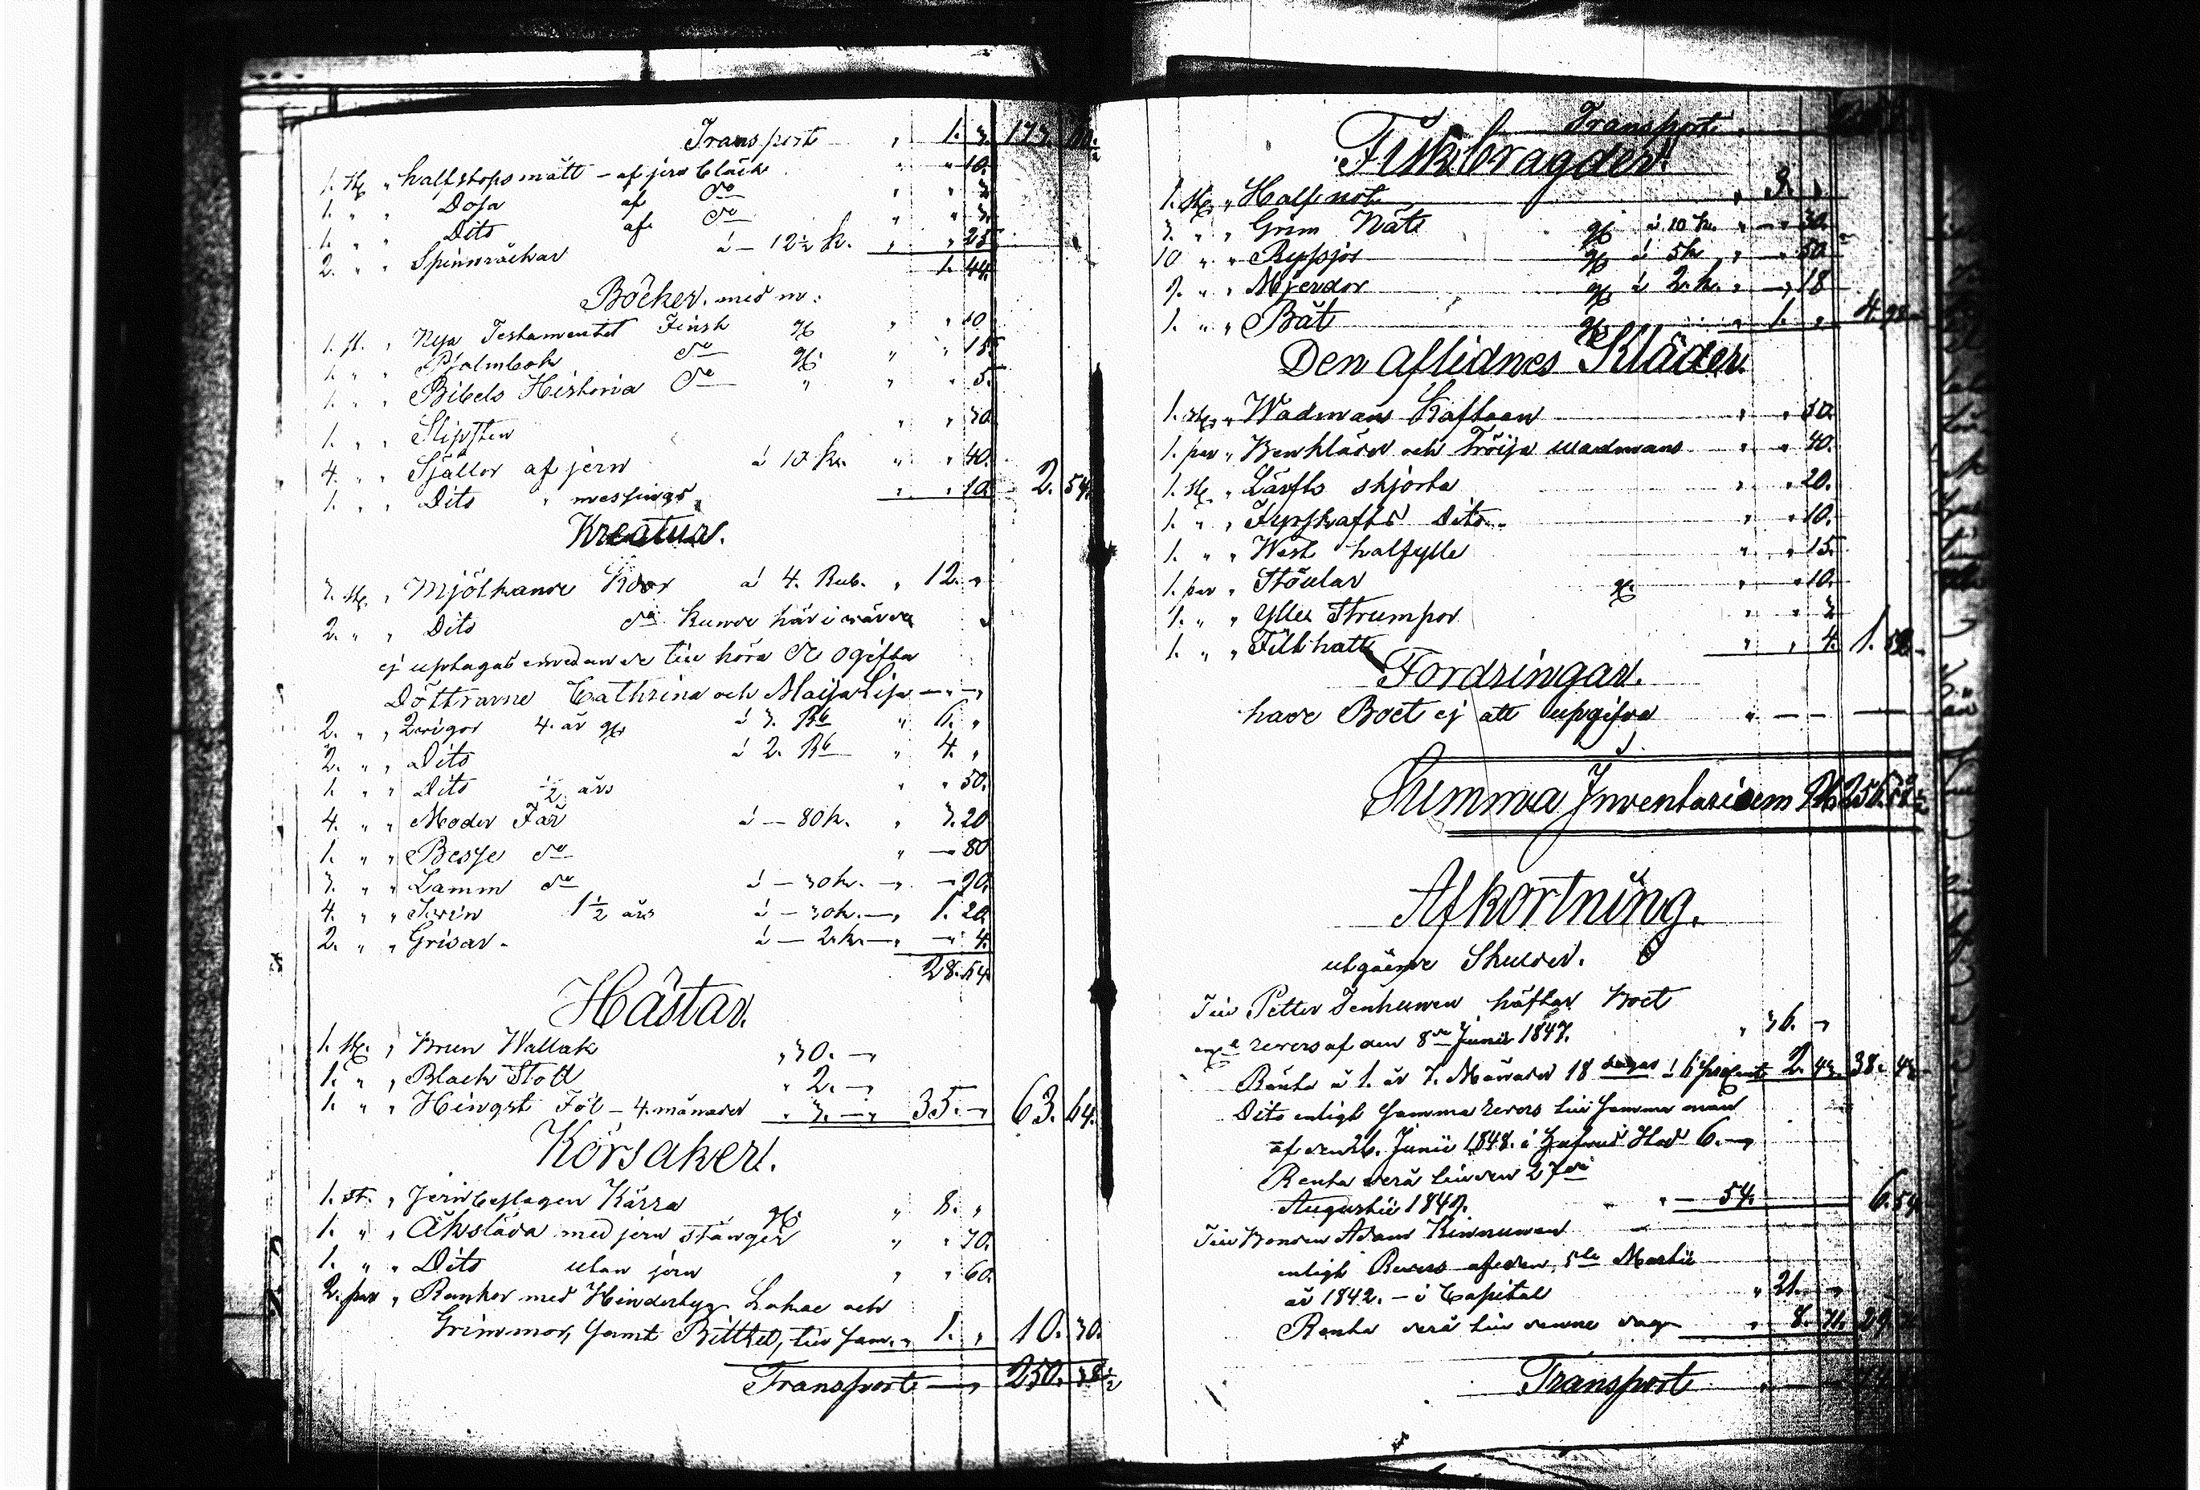 Transport " 1. 3. 173.
1. st. " halfstops mått - af jern bläck " " 10.
1. " " Dosa af do " " 3
1. " " Dito af do " " 3.
2. " " Spinnråckar à - 12½ k. " " 25
1. 44.
Böcker. med m:
1. st. " Nya Testamentet Finsk gl " " 10
1. " " Psalmbok do gl. " " 15
1. " " Bibels Historia do " " " 5.
1. " " Slipsten " " 30.
4. " " Själlor af jern à 10 k. " " 40.
1. " " Dito " messings " " 10 2. 54.
Kreatur.
3. st. " Mjölkande Koor à 4. Rub. " 12. "
2. " " Dito do kunde här i värde
ej uptagas emedan de till höra de ogifta
Döttrarne Cathrina och Maija Lisa — " —
2. " " Qvigor 4. år gl. à 3. Rb " 6. "
2. " " Dito à 2. Rb " 4. "
1. " " Dito ½ års " " 50.
4. " " Moder Får à - 80 k. " 3. 20
1. " " Besse do " — 80
3. " " Lamm do à - 30 k. — " — 90.
4. " " Swin 1½ års à - 30 k. — " 1. 20
2. " " Grisar. à - 2. k. — " — 4.
28. 64.
Hästar.
1. st. " Brun Wallak " 30. —
1. " " Black Stod " 2. —
1. " " Hingst Föl - 4. månader " 3. — 35. — 63. 64.
Körsaker.
1. st. " Jernbeslagen Kärra gl. " 8. "
1. " " Åkslåda med jern stänger " " 70.
1. " " Dito utan jern " " 60.
2. par " Rankor med Hinderty, Lokae och
Grimmor, samt Bittzel, till sam. " 1. " 10. 30.
Transport — " 250.
Transport "
Fiskbragder.
1. st. " Half not " 3. "
3. " " Grim Nät gl à 10 k. " — 30.
10 " " Ryssjor gl à 5 k " " 50
9. " " Mjerdor gl à 2. k. " — 18
1. " " Båt gl. " 1. " 4. 98
Den Aflidnes Kläder.
1. st. " Wadmans Kaftaan " " 50.
1. par " Benkläder och Tröija wadmans " " 40.
1. st. " Lärfts skjorta " " 20.
1. " " Fyrskafts Dito. " " 10.
1. " " West halfylle " " 15.
1. par " Stöwlar gl. " " 10.
1. " " ylle Strumpor " " 3
1. " " Filt hatt " " 4. 1. 52
Fordringar.
have Boet ej att upgifva " — — —
Summa Inventarium Rb 256.
Afkortning.
utgående Skulder.
Till Petter Tenhunen häftar Boet
revers af den 8de Junii 1847. " 36. —
Ränta à 1. år 7. Månader 18 dagar à 6 procent 2. 43. 38. 43
Dito enligt samma revers till samma man
af den 26. Junii 1848. 6. —
Renta derå till den 27de
Augustii 1849. " — 54. 6. 54
Till Bonden Adam Kinnunen —
enligt Revers af den 5te Martii
år 1842. - i Capital " 21. "
Renta derå till denne dag " 8. 71. 29.
Transport " —